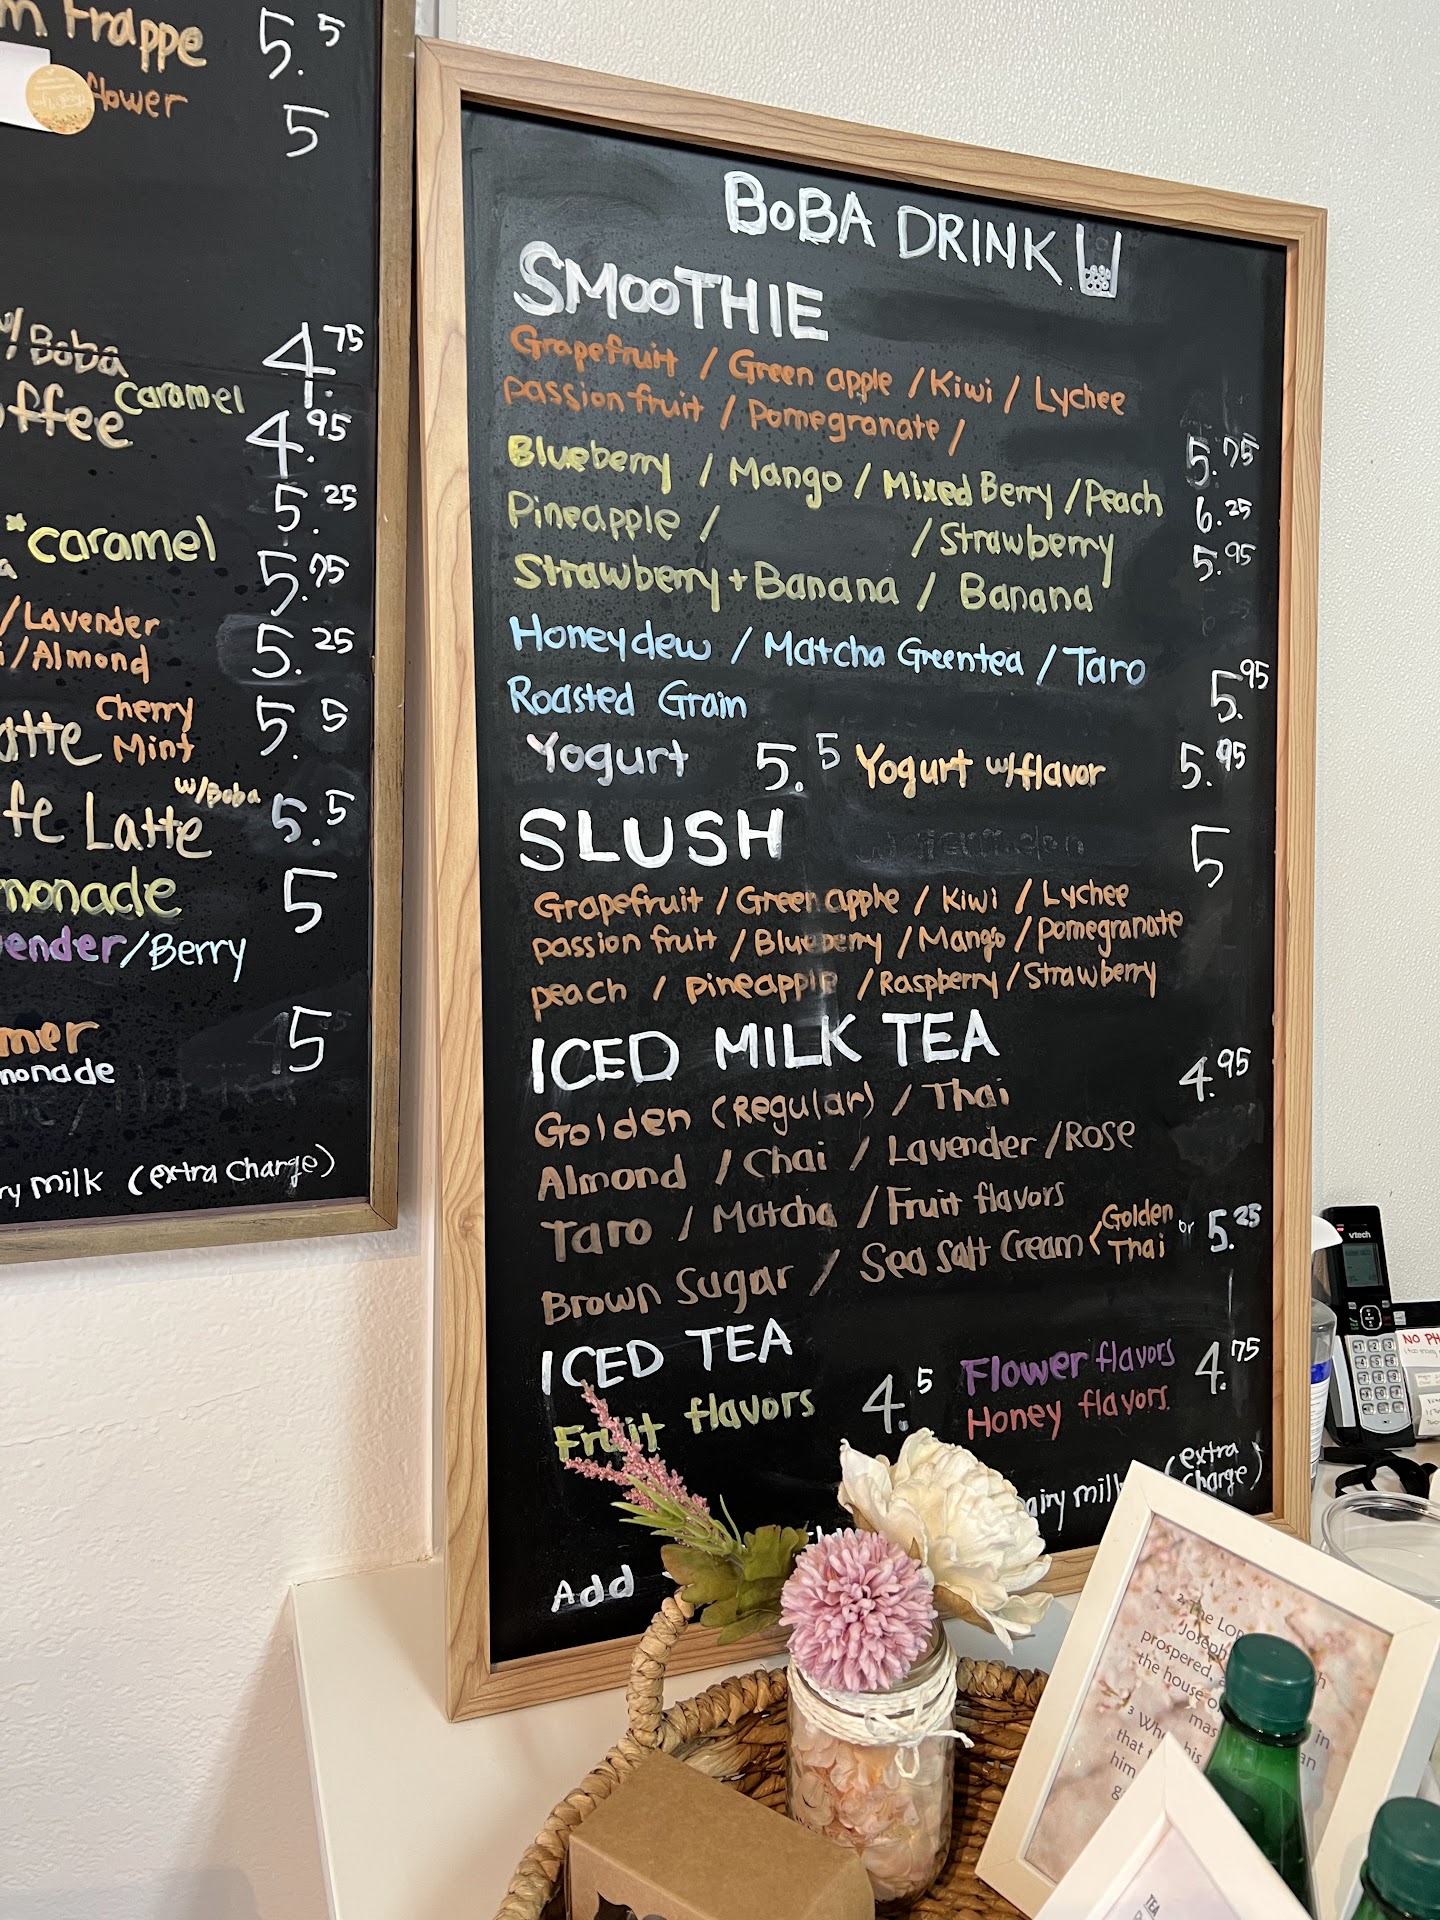 m Frappe 5.5
flower 5
w/Boba 4.75
ffee caramel 4.95
5.25
*caramel 5.75
/Lavender
i/Almond 5.25
atte Cherry Mint 5.5
fe Latte w/Boba 5.5
monade 5
ender/Berry
mer 5
monade
ry milk (extra charge)
BOBA DRINK
SMOOTHIE
Grapefruit / Green apple / Kiwi / Lychee
passion fruit / Pomegranate / 5.75
Blueberry / Mango / Mixed Berry / Peach 6.25
Pineapple / / Strawberry 5.95
Strawberry + Banana / Banana
Honeydew / Matcha Greentea / Taro
Roasted Grain 5.95
Yogurt 5.5 Yogurt w/flavor 5.95
SLUSH 5
Grapefruit / Green apple / Kiwi / Lychee
passion fruit / Blueberry / Mango / pomegranate
peach / pineapple / Raspberry / Strawberry
ICED MILK TEA 4.95
Golden (Regular) / Thai
Almond / Chai / Lavender / Rose
Taro / Matcha / Fruit flavors
Brown Sugar / Sea Salt Cream < Golden or Thai 5.25
ICED TEA
Fruit flavors 4.5 Flower flavors 4.75
Honey flavors
airy milk (extra charge)
Add
vtech
NO PH
2 The LOR
Joseph h
prospered, a
the house o
mas in
3 Whe his an
that t
him
g
TEA